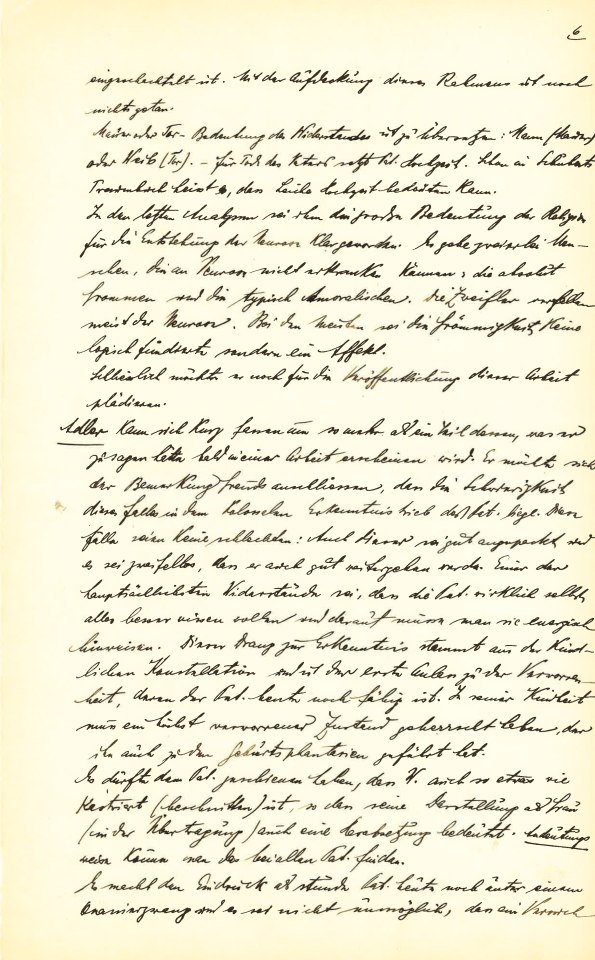 6
eingeschachtelt ist. Mit der Aufdeckung dieses Rahmens ist noch
nichts getan.
Mauer oder Tor- Bedeutung des Widerstandes ist zu übersetzen: Mann (Mauer)
oder Weib (Tor). – für Tod des Vaters setzt Pat. Hochzeit. Schon in Schuberts
Traumbuch heisst es, dass Leiche Hochzeit bedeuten kann.
In den letzten Analysen sei ihm die grosse Bedeutung der Religion
für die Entstehung der Neurose klargeworden. Es gebe zweierlei Men-
schen, die an Neurose nicht erkranken können: die absolut
frommen und die typisch Amoralischen. Die Zweifler verfallen
meist der Neurose. Bei den meisten sei die Frömmigkeit keine
logisch fundierte sondern ein Affekt.
Schliesslich möchte er noch für die Veröffentlichung dieser Arbeit
plädieren.
Adler kann sich kurz fassen um so mehr als ein Teil dessen, was er
zu sagen hätte bald in einer Arbeit erscheinen wird. Er möchte sich
der Bemerkung Freuds anschliessen, dass die Schwierigkeit
dieses Falles in dem kolossalen Erkenntnistrieb des Pat. liege. Diese
Fälle seien keine schlechten: Auch dieser sei gut angepackt und
es sei zweifellos, dass er auch gut weitergehen werde. Einer der
hauptsächlichsten Widerstände sei, dass die Pat. wirklich selbst
alles besser wissen wollen und darauf müsse man sie energisch
hinweisen. Dieser Drang zur Erkenntnis stammt aus der Kind-
lichen Konstellation und ist der erste Anlass zu der Verworren-
heit, deren der Pat. heute noch fähig ist. In seiner Kindheit
muss ein höchst verworrener Zustand geherrscht haben, der
ihn auch zu den Geburtsphantasien geführt hat.
Es dürfte dem Pat. geschienen haben, dass W. auch so etwas wie
kastriert (beschnitten) ist, so dass seine Darstellung als Frau
(in der Übertragung) auch eine Herabsetzung bedeutet. Andeutungs
weise könne man das bei allen Pat. finden.
Es macht den Eindruck als stünde Pat. heute noch unter einem
Onaniezwang und es sei nicht unmöglich, dass ein Versuch